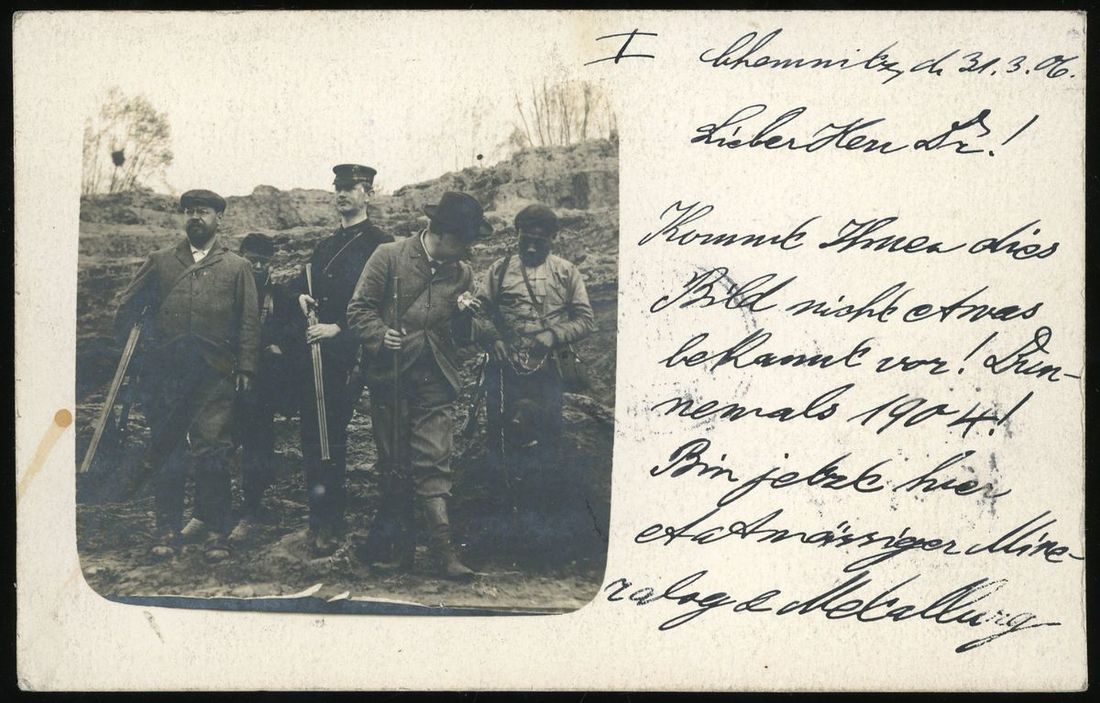 I
Chemnitz, d. 31.3.06.
Lieber Herr Dr.!
Kommt Ihnen dies
Bild nicht etwas
bekannt vor! Dun-
nemals 1904!
Bin jetzt hier
etatmässiger Mine-
ralog & Metallurg